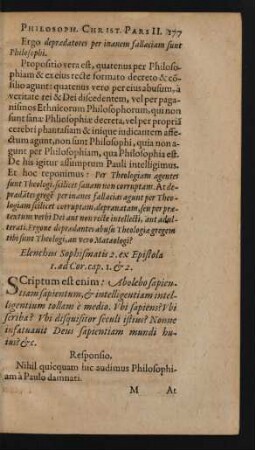 PHILOSOPH. CHRIST. PARS II. 277
Ergo depradatores per inanem fallaciam sunt
Philosophi.
Propositio vera est, quatenus per Philoso-
phiam & ex eius recte formato decreto & cõ-
silio agunt: quatenus vero per eius abusum, à
veritate rei & Dei discedentem, vel per paga-
nismos Ethnicorum Philosophorum, qui non
sunt sanæ Philosophiæ decreta, vel per propriã
cerebri phantasiam & inique iudicantem affe-
ctum agunt, non sunt Philosophi, quia non a-
gunt per Philosophiam, qua Philosophia est.
De his igitur assumptum Pauli intelligimus.
Et hoc reponimus: Per Theologiam agentes
sunt Theologi, scilicet sanam non corruptam. At de-
prædātes gregē per inanes fallacias agunt per Theo-
logiam scilicet corruptam, depranatam, seu per pro-
textum verbi Dei aut non recte intellecti, aut adul-
terati. Ergone depradantes abusu Theologiæ gregem
tibi sunt Theologi, an vero Matæologi?
Elenchus Sophismatis 2. ex Epistola
1. ad Cor. cap. 1. & 2.
SCriptum est enim: Abolebo sapien-
tiam sapientum, & intelligentiam intel-
ligentium tollam è medio. Vbi sapiens? Vbi
scriba? Vbi disquisitor seculi istius? Nonne
infatuauit Deus sapientiam mundi hu-
ius? &c.
Responsio.
Nihil quicquam hic audimus Philosophi-
am à Paulo damnari.
M At